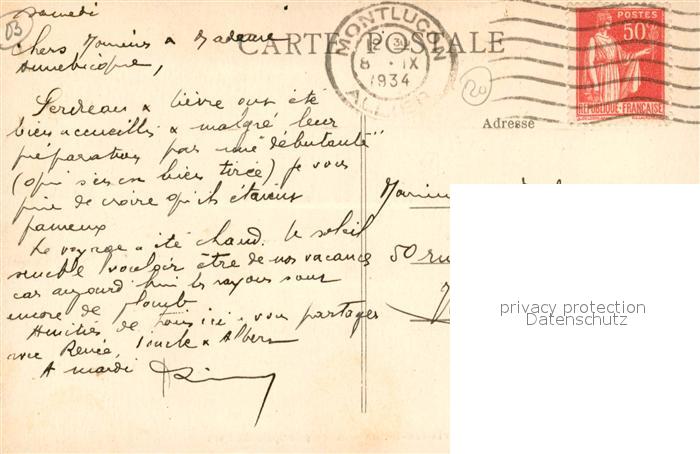 Samedi
03
Chers Monsieur & Madame
CARTE POSTALE
MONTLUCON
12 30
8 · IX
1934
ALLIER
POSTES
50c
REPUBLIQUE FRANÇAISE
Adresse
Perdreau & lièvre ont été
bien accueillis & malgré leur
préparation par une "débutante"
(qui s'en est bien tirée) je vous
prie de croire qu'ils étaient
fameux
Le voyage a été chaud. Le soleil
semble vouloir être de nos vacances
car aujourd'hui les rayons sont
encore de plomb
Amitiés de tous ici à vous partager
avec Renée, & Albert
A mardi
50 rue
privacy protection
Datenschutz